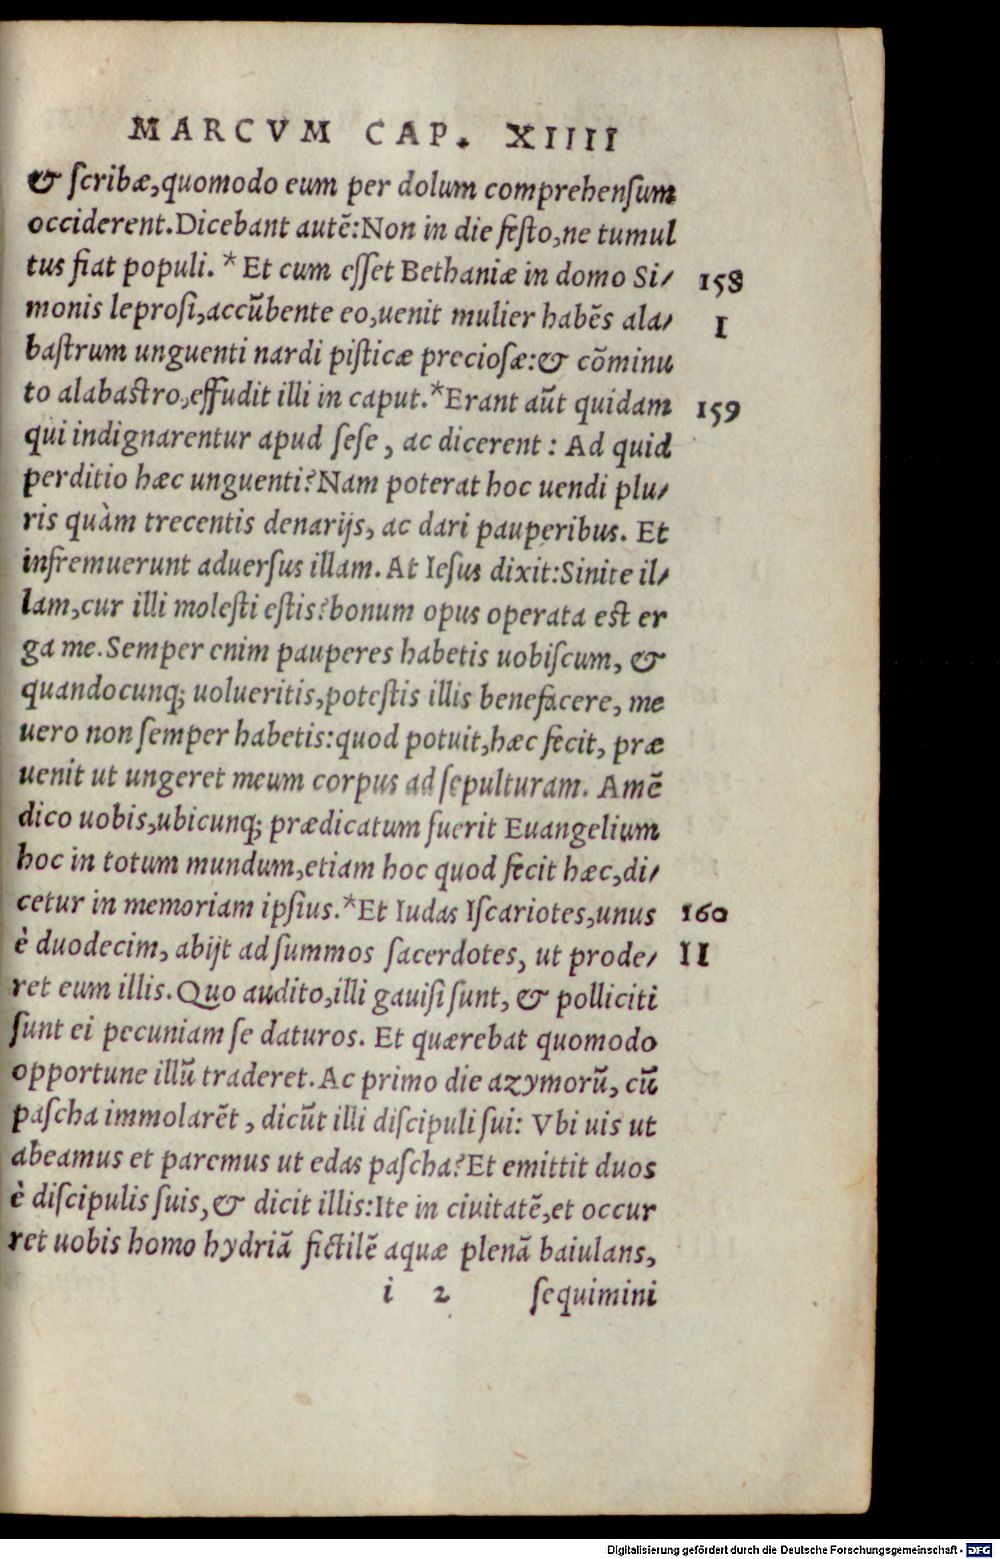 MARCVM CAP. XIIII
& ſcribæ, quomodo eum per dolum comprehenſum
occiderent. Dicebant autē: Non in die feſto, ne tumul
tus fiat populi. * Et cum eſſet Bethaniæ in domo Si/ 158
monis leproſi, accūbente eo, uenit mulier habēs ala/ I
baſtrum unguenti nardi piſticæ precioſæ: & cōminu
to alabaſtro, effudit illi in caput. * Erant aūt quidam 159
qui indignarentur apud ſeſe, ac dicerent: Ad quid
perditio hæc unguenti? Nam poterat hoc uendi plu/
ris quàm trecentis denarijs, ac dari pauperibus. Et
infremuerunt aduerſus illam. At Ieſus dixit: Sinite il/
lam, cur illi moleſti eſtis? bonum opus operata eſt er
ga me. Semper enim pauperes habetis uobiſcum, &
quandocunq; uolueritis, poteſtis illis benefacere, me
uero non ſemper habetis: quod potuit, hæc fecit, præ
uenit ut ungeret meum corpus ad ſepulturam. Amē
dico uobis, ubicunq; prædicatum fuerit Euangelium
hoc in totum mundum, etiam hoc quod fecit hæc, di/
cetur in memoriam ipſius. * Et Iudas Iſcariotes, unus 160
è duodecim, abijt ad ſummos ſacerdotes, ut prode/ II
ret eum illis. Quo audito, illi gauiſi ſunt, & polliciti
ſunt ei pecuniam ſe daturos. Et quærebat quomodo
opportune illū traderet. Ac primo die azymorū, cū
paſcha immolarēt, dicūt illi diſcipuli ſui: Vbi uis ut
abeamus et paremus ut edas paſcha? Et emittit duos
è diſcipulis ſuis, & dicit illis: Ite in ciuitatē, et occur
ret uobis homo hydriā fictilē aquæ plenā baiulans,
i 2 ſequimini
Digitalisierung gefördert durch die Deutsche Forschungsgemeinschaft - DFG